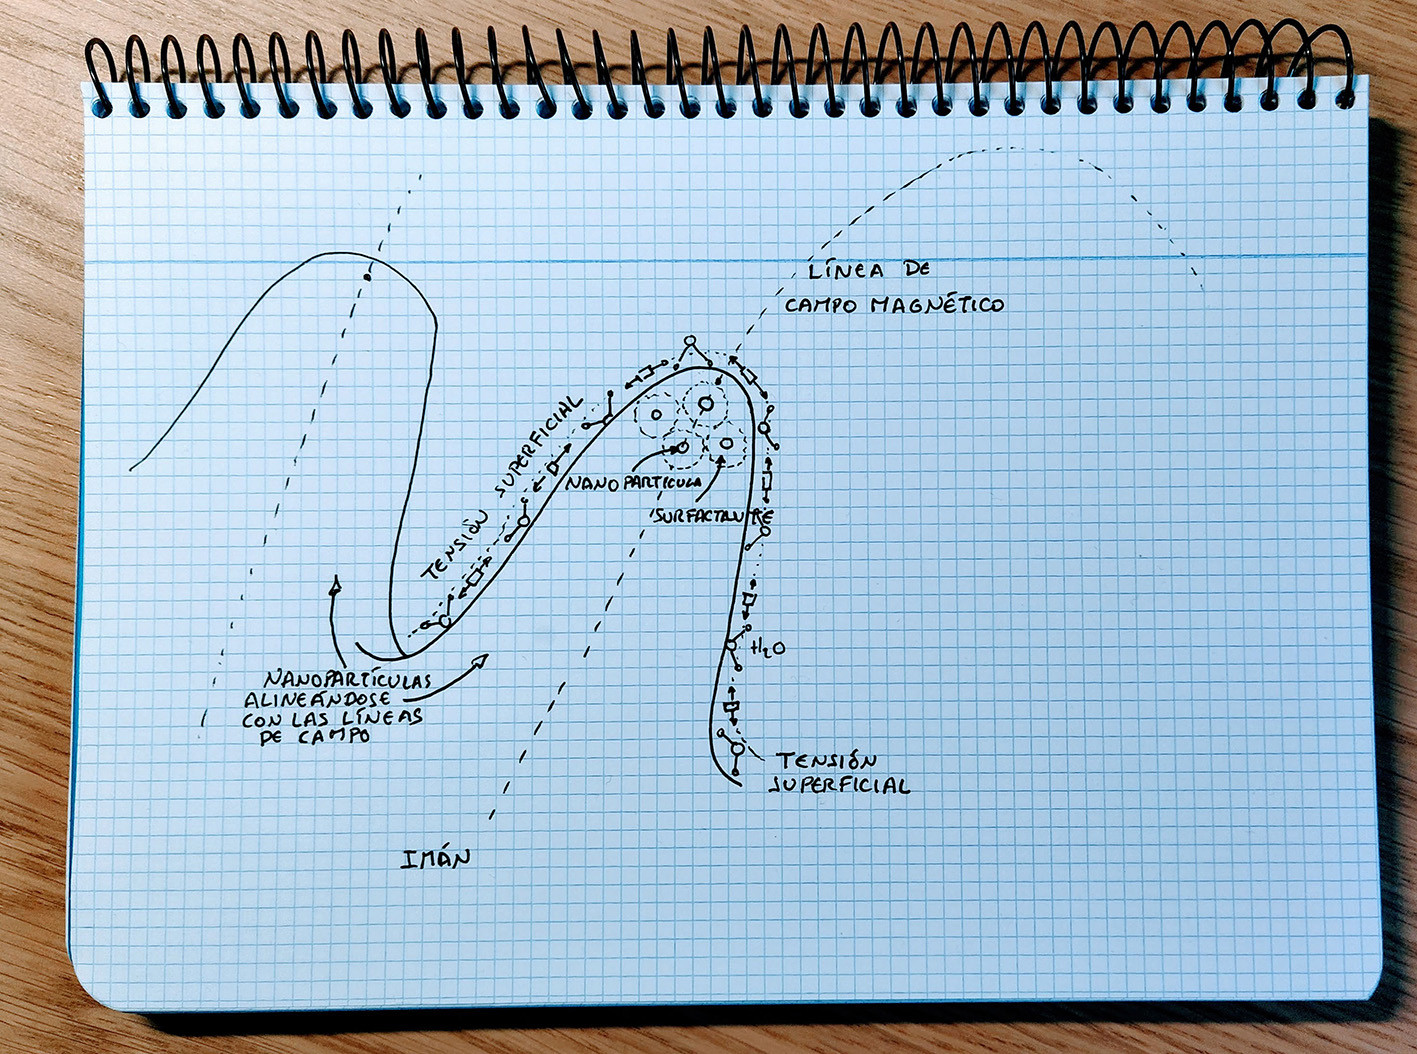 LÍNEA DE
CAMPO MAGNÉTICO
TENSIÓN SUPERFICIAL
NANOPARTÍCULA
SURFACTANTE
H₂O
NANOPARTÍCULAS
ALINEÁNDOSE
CON LAS LÍNEAS
DE CAMPO
TENSIÓN
SUPERFICIAL
IMÁN